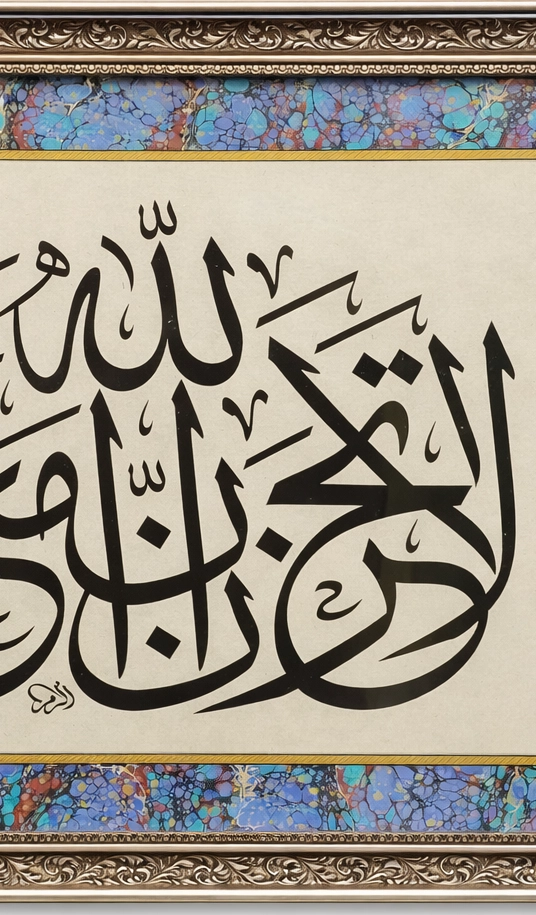 لَا تَحْزَنْ إِنَّ اللّٰهَ